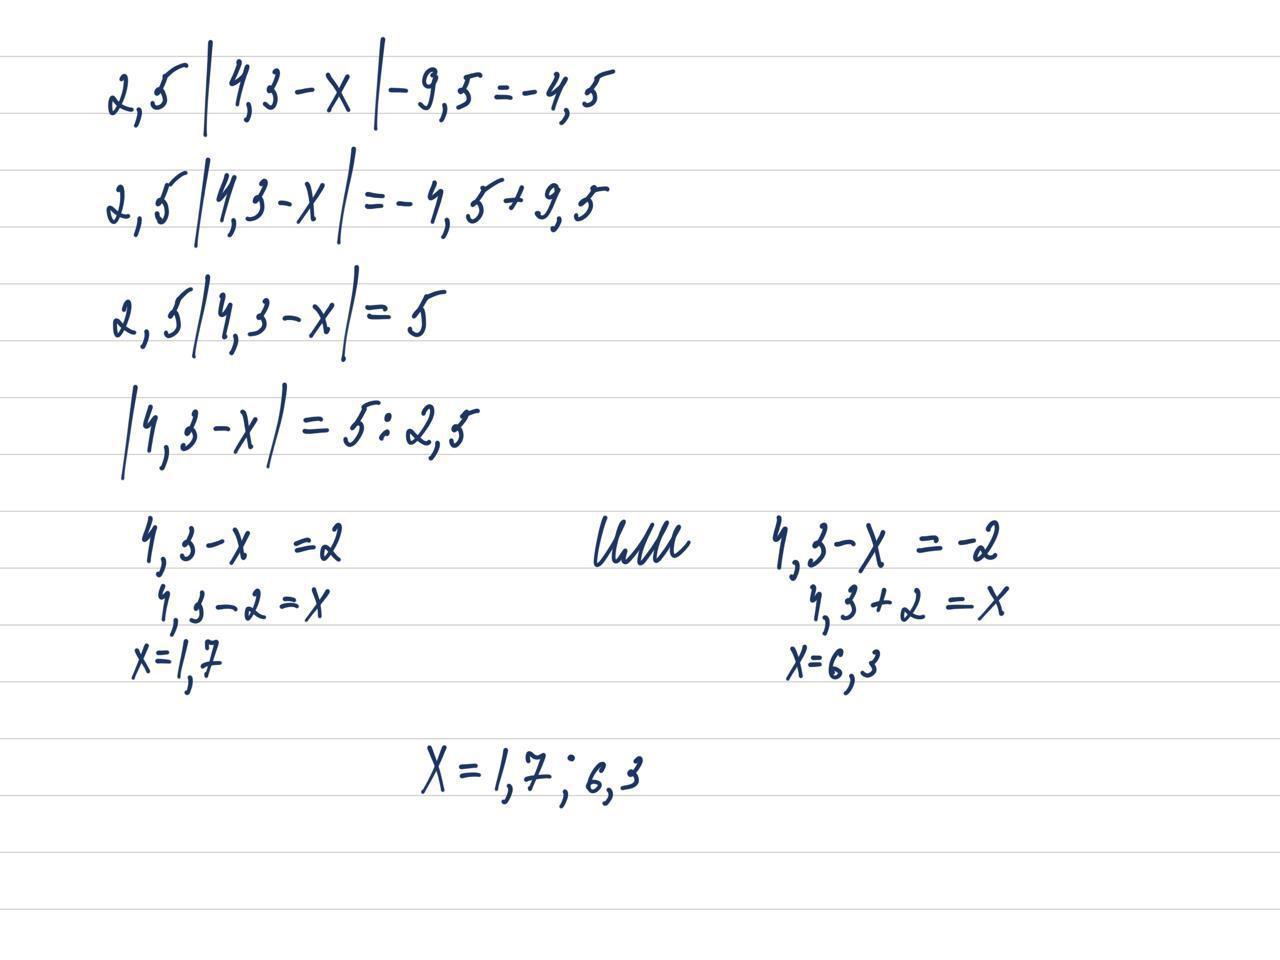 2,5|4,3-x|-9,5=-4,5
2,5|4,3-x|=-4,5+9,5
2,5|4,3-x|=5
|4,3-x|=5:2,5
4,3-x =2 или 4,3-x =-2
4,3-2=x 4,3+2=x
x=1,7 x=6,3
x=1,7;6,3